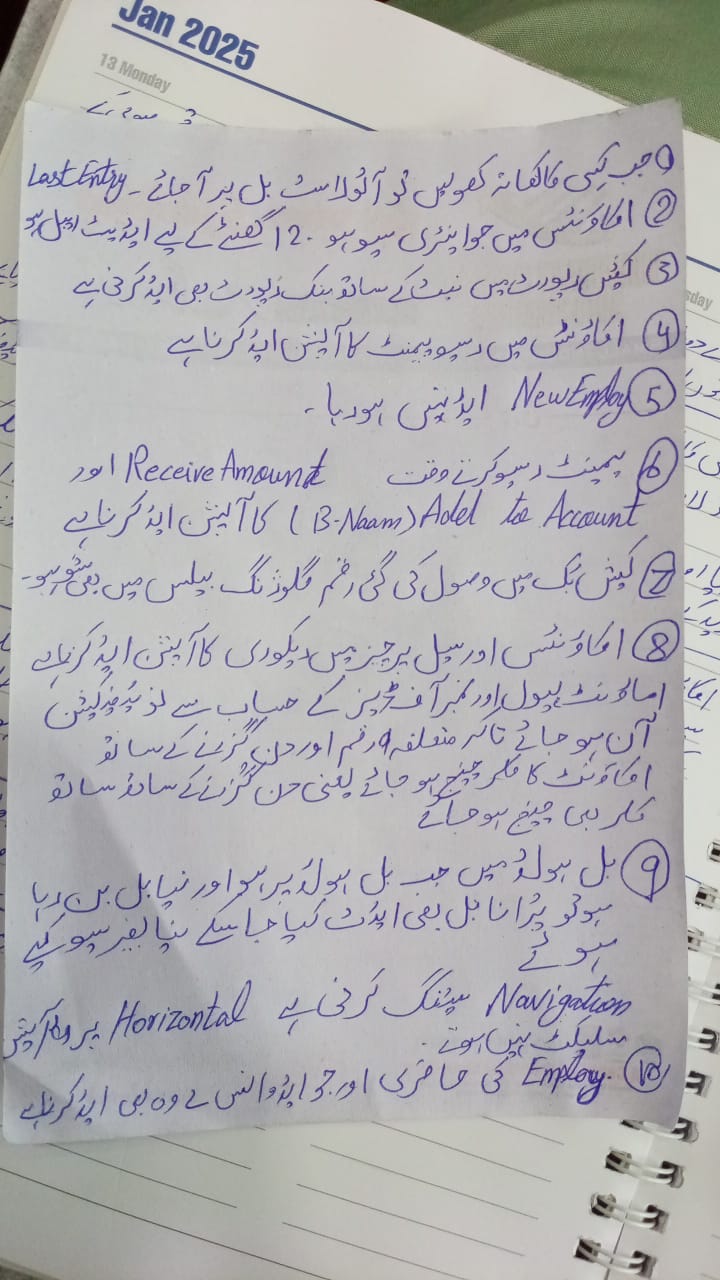 Jan 2025
13 Monday
① جب کسی کا کھاتہ کھولیں تو آٹو لاسٹ بل پر آ جائے ۔ Last Entry
② اکاؤنٹس میں جو اینٹری سیو ہو ۔ 12 گھنٹے کے لیے اپڈیٹ ایبل ہو
③ کیش رپورٹ میں نیٹ کے ساتھ بنک رپورٹ بھی ایڈ کرنی ہے
④ اکاؤنٹس میں رسیو پیمنٹ کا آپشن ایڈ کرنا ہے
⑤ New Employ ایڈ نہیں ہو رہا ۔
⑥ پیمنٹ رسیو کرتے وقت Receive Amount اور
Add to Account (B-Naam) کا آپشن ایڈ کرنا ہے
⑦ کیش بک میں وصول کی گئی رقم کلوزنگ بیلنس میں بھی شو ہو۔
⑧ اکاؤنٹس اور سیل پرچیز میں ریکوری کا آپشن ایڈ کرنا ہے
اماؤنٹ لیول اور نمبر آف ڈیز کے حساب سے نوٹیفکیشن
آن ہو جائے تاکہ متعلقہ رقم اور دن گزرنے کے ساتھ
اکاؤنٹ کا کلر چینج ہو جائے یعنی دن گزرنے کے ساتھ ساتھ
کلر بھی چینج ہو جائے
⑨ بل ہولڈ میں جب بل ہولڈ پر ہو اور نیا بل بن رہا
ہو تو پرانا بل بھی ایڈٹ کیا جا سکے نیا بغیر سیو کیے
ہوئے
Navigation سیٹنگ کرنی ہے Horizontal پر آپشن
سلیکٹ نہیں ہوتے ۔
⑩ Employ. کی حاضری اور جو ایڈوانس لے وہ بھی ایڈ کرنا ہے